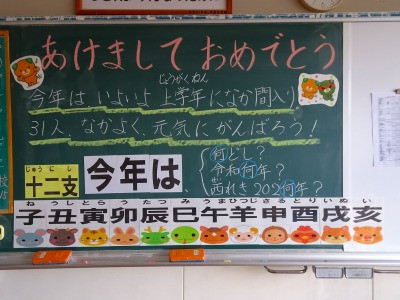 あけまして おめでとう
じょうがくねん
今年は いよいよ 上学年になか間入り
31人、なかよく、元気にがんばろう!
じゅう に し
十二支
今年は、
何どし?
令和何年?
西れき 202何年?
ね うし とら う たつ み うま ひつじ さる とり いぬ い
子丑寅卯辰巳午羊申酉戌亥